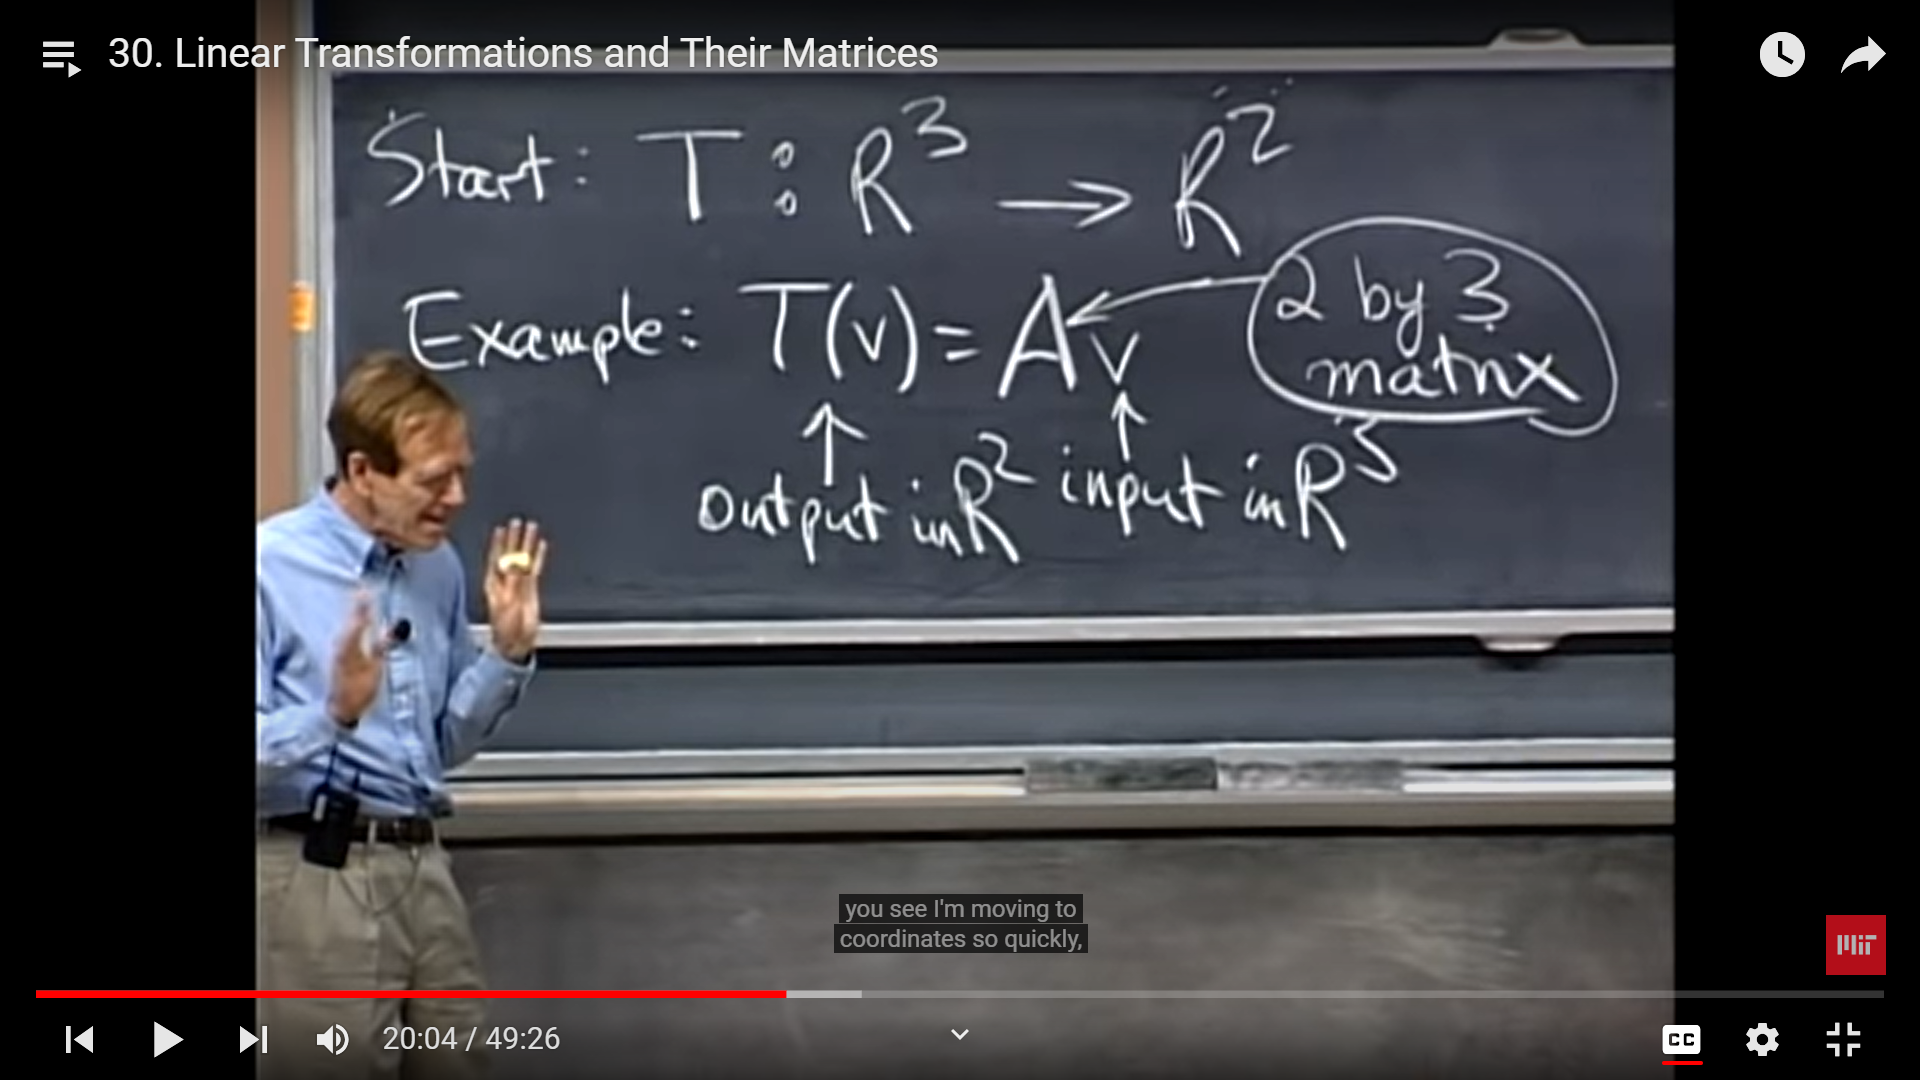 30. Linear Transformations and Their Matrices
Start: T : R³ → R²
Example: T(v) = Av
2 by 3
matrix
output in R² input in R³
you see I'm moving to
coordinates so quickly,
MIT
20:04 / 49:26
CC